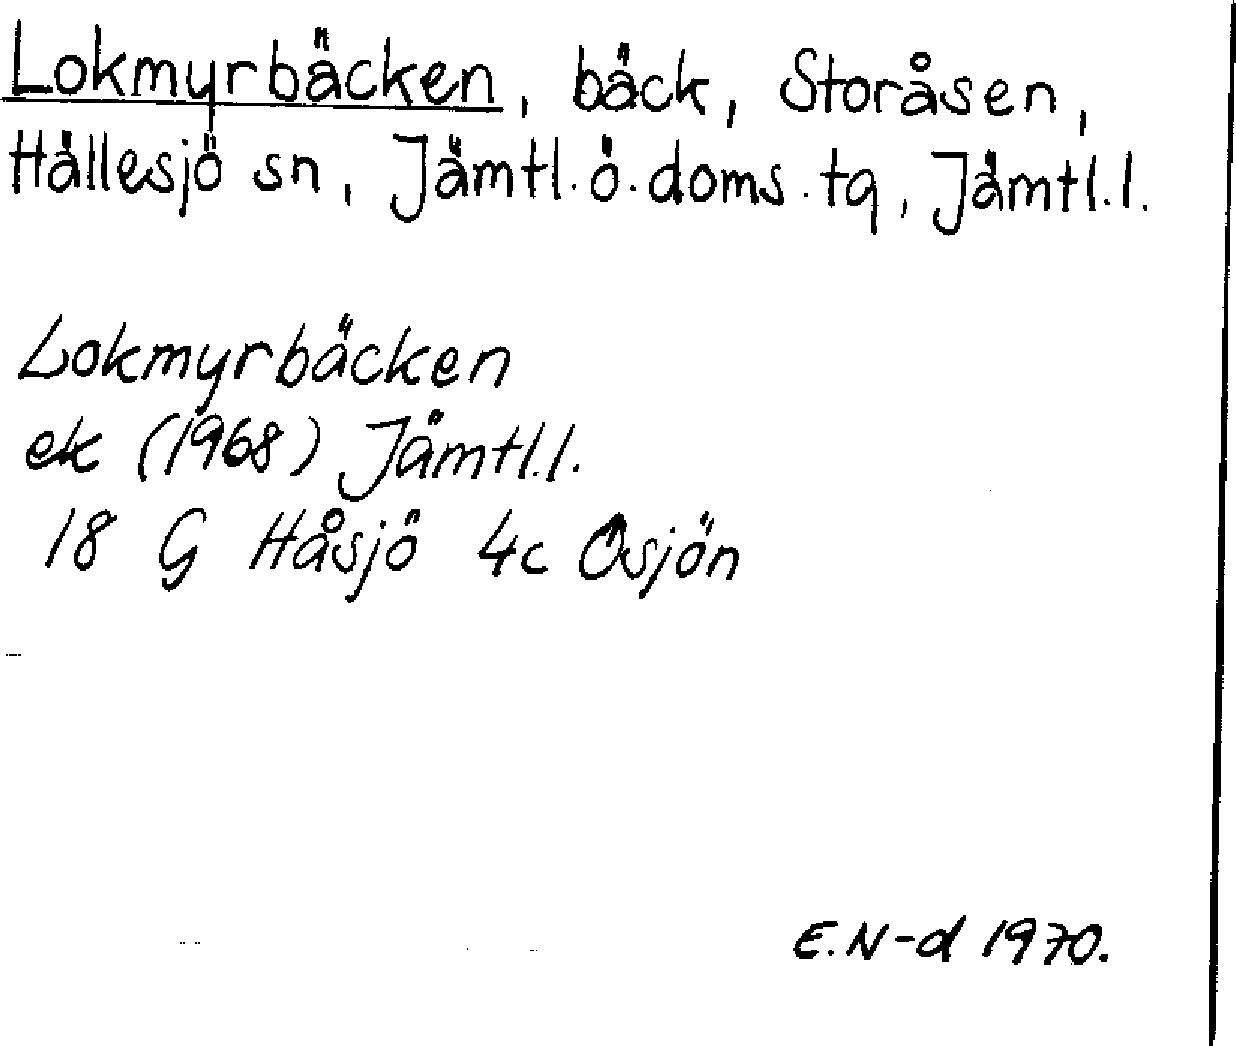 Lokmyrbäcken, bäck, Storåsen,
Hällesjö sn, Jämtl.ö.doms.tg, Jämtl.l.
Lokmyrbäcken
ek (1968) Jämtl.l.
18 G Håsjö 4c Osjön
E.N-d 1970.